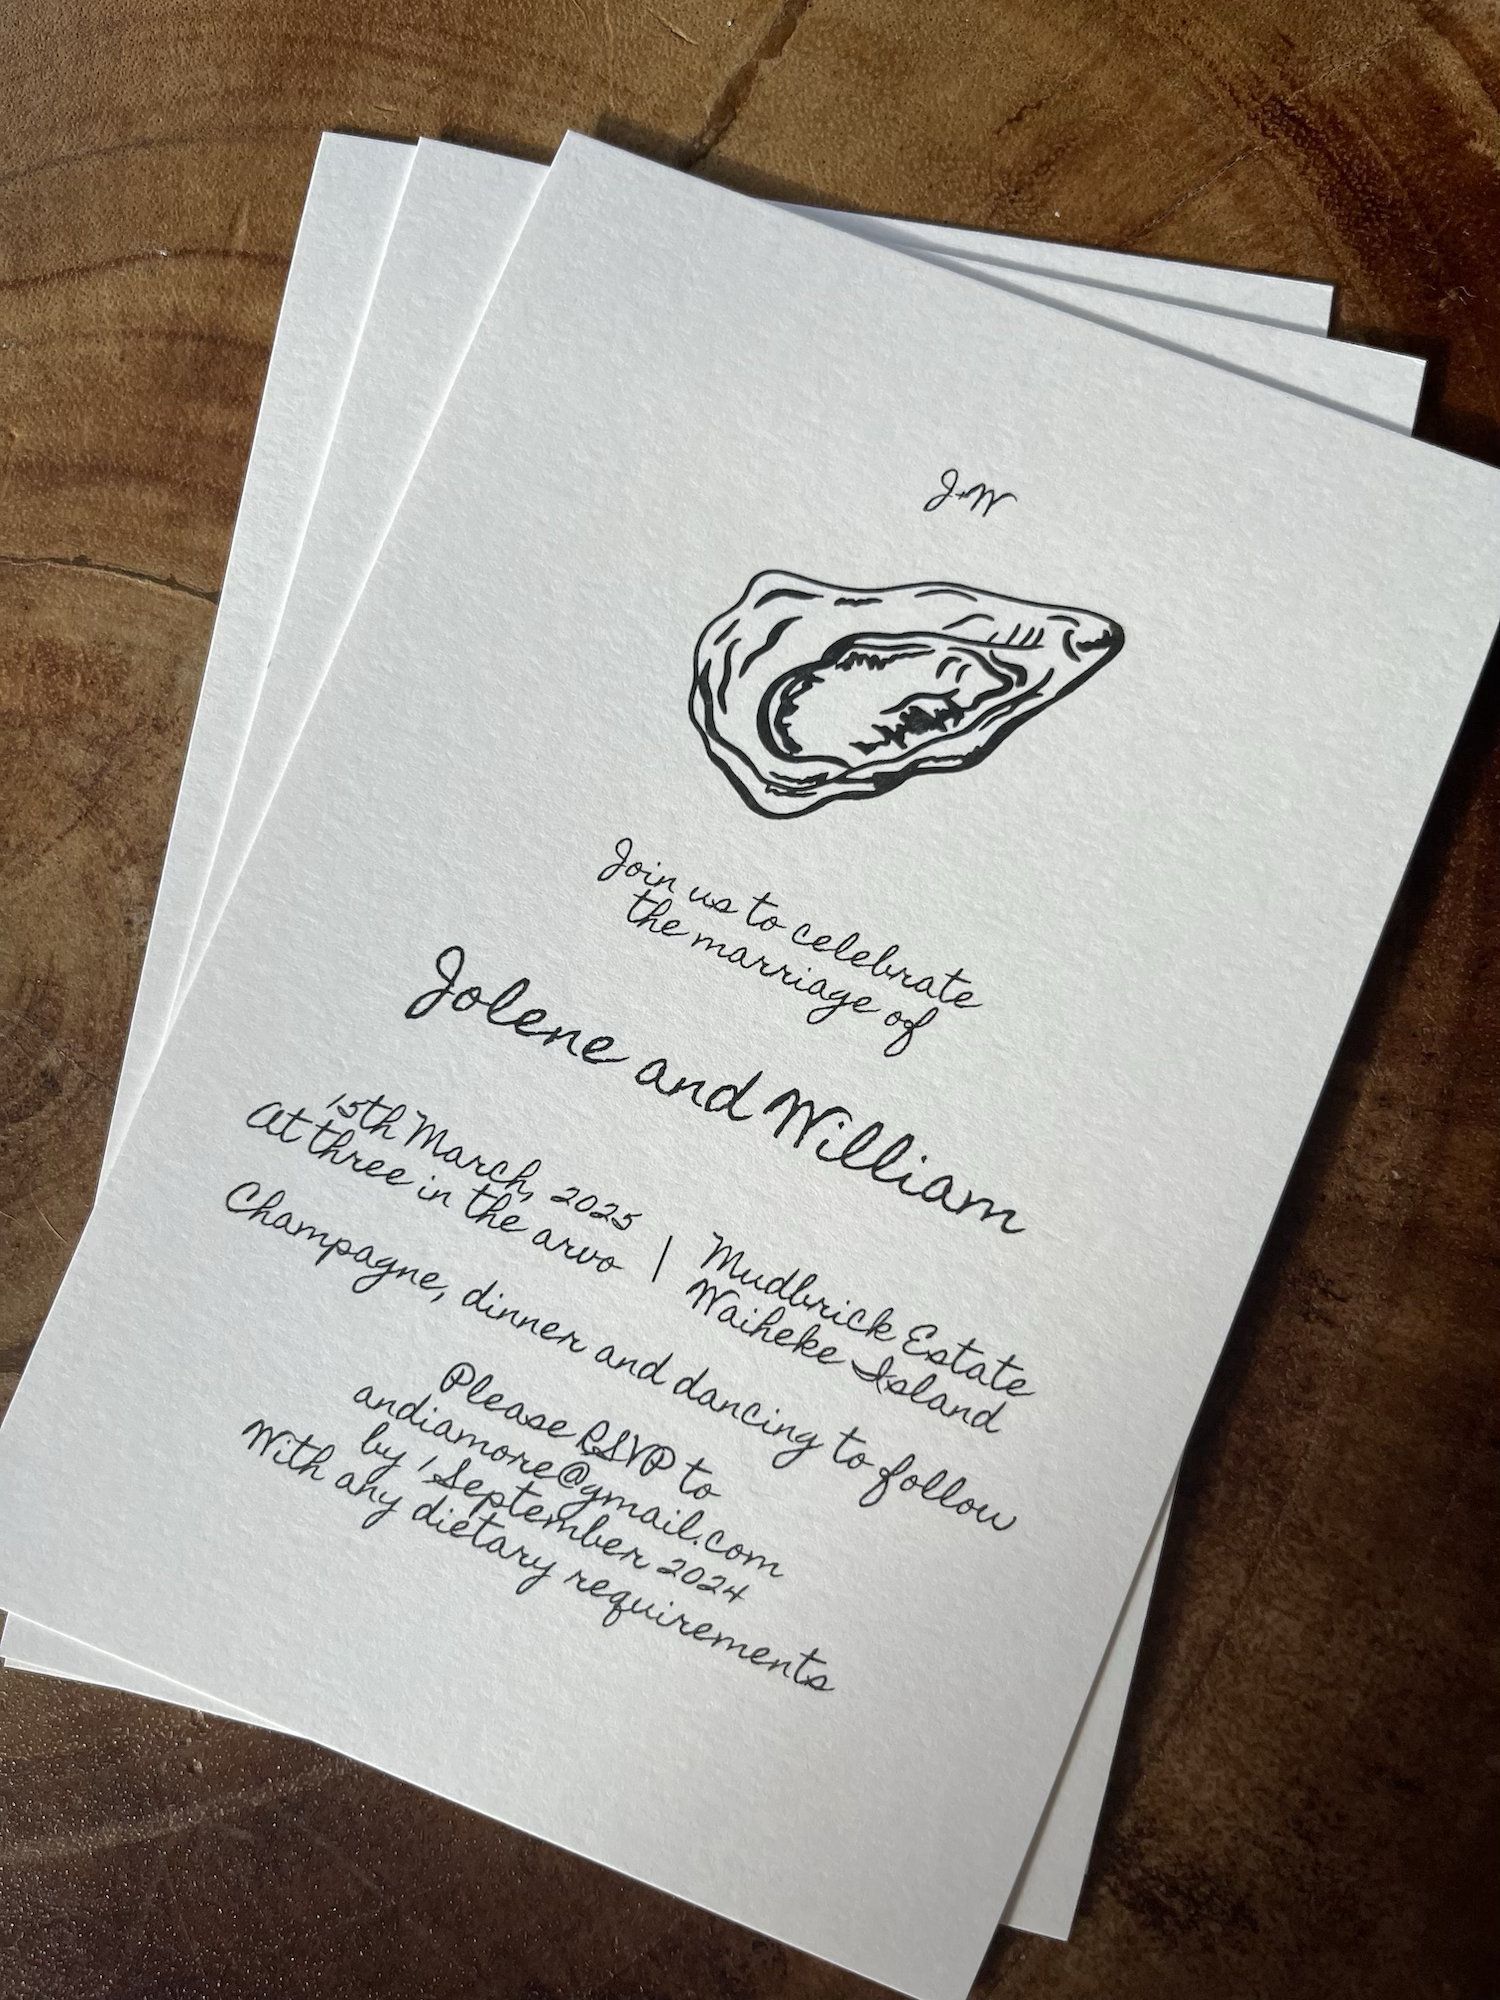 J+W
Join us to celebrate
the marriage of
Jolene and William
15th March, 2025
At three in the arvo
|
Mudbrick Estate
Waiheke Island
Champagne, dinner and dancing to follow
Please RSVP to
andiamore@gmail.com
by 1 September 2024
With any dietary requirements